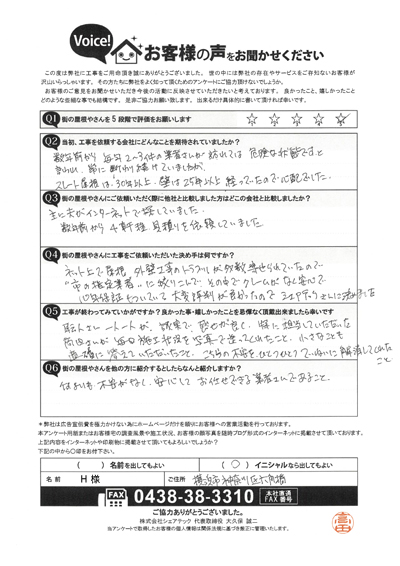 Voice!
お客様の声をお聞かせください
この度は弊社に工事をご用命頂き誠にありがとうございました。世の中には弊社の存在やサービスをご存知ないお客様が
沢山いらっしゃいます。その方たちに弊社をよく知って頂くためのアンケートにご協力頂けないでしょうか。
お客様のご意見をお聞かせいただき今後の活動に反映させていただきたいと考えております。良かったこと、嬉しかったこと
どのような些細な事でも結構です。是非ご協力お願い致します。出来るだけ具体的に書いて頂ければ幸いです。
Q1 街の屋根やさんを5段階で評価をお願いします ☆ ☆ ☆ ☆ ☆
Q2 当初、工事を依頼する会社にどんなことを期待されていましたか?
数年前から 毎年2~3件の業者さんが訪れては 危険な状態ですと
言われ、常に断り続けていましたが、
スレート屋根は30年以上、壁は25年以上経っていたので心配でした。
Q3 街の屋根やさんにご依頼いただく際に他社と比較しました方はどこの会社と比較しましたか?
主に夫がインターネットで探していました。
数年前から 見積りを依頼していました
Q4 街の屋根やさんに工事をご依頼いただいた決め手は何ですか?
ネット上で屋根、外壁工事のトラブルが多数寄せられていたので
"市の指定業者"に絞りこんで その中でクレームがなく安心で
ついていて 大変評判が良かったので シェアテックさんに決めました
Q5 工事が終わってみていかがでしたか?良かった事・嬉しかったことを忌憚なく頂戴出来ましたら幸いです
職人さん一人一人が、誠実で、感じが良く、特に担当していただいた
さんが毎日施工状況を写真で送ってくれたこと、小さなことも
丁寧に答えていただいたこと、こちらの不安をひとつひとつていねいに解消してくれた
こと
Q6 街の屋根やさんを他の方に紹介するとしたらなんと紹介しますか?
何よりも不安がなく、安心してお任せできる業者さんであること。
*弊社は広告宣伝費を極力かけない為にホームページだけを頼りにお客様への営業活動を行っております。
*本アンケート用紙またはお客様宅の調査風景や施工状況、お客様の顔写真を随時ブログ形式のインターネットに掲載させて頂いております。
上記内容をインターネットや印刷物に掲載させて頂いてもよろしいでしょうか?
下記の中から○印をお付け下さい。
( ) 名前を出してもよい (○) イニシャルなら出してもよい
名前 H様 ご住所 横浜市神奈川区六角橋
FAX 0438-38-3310 本社直通 FAX番号
ご協力ありがとうございました。
株式会社シェアテック 代表取締役 大久保 誠二
当アンケートで取得したお客様の個人情報は関係法規に基づき厳正に管理いたします。